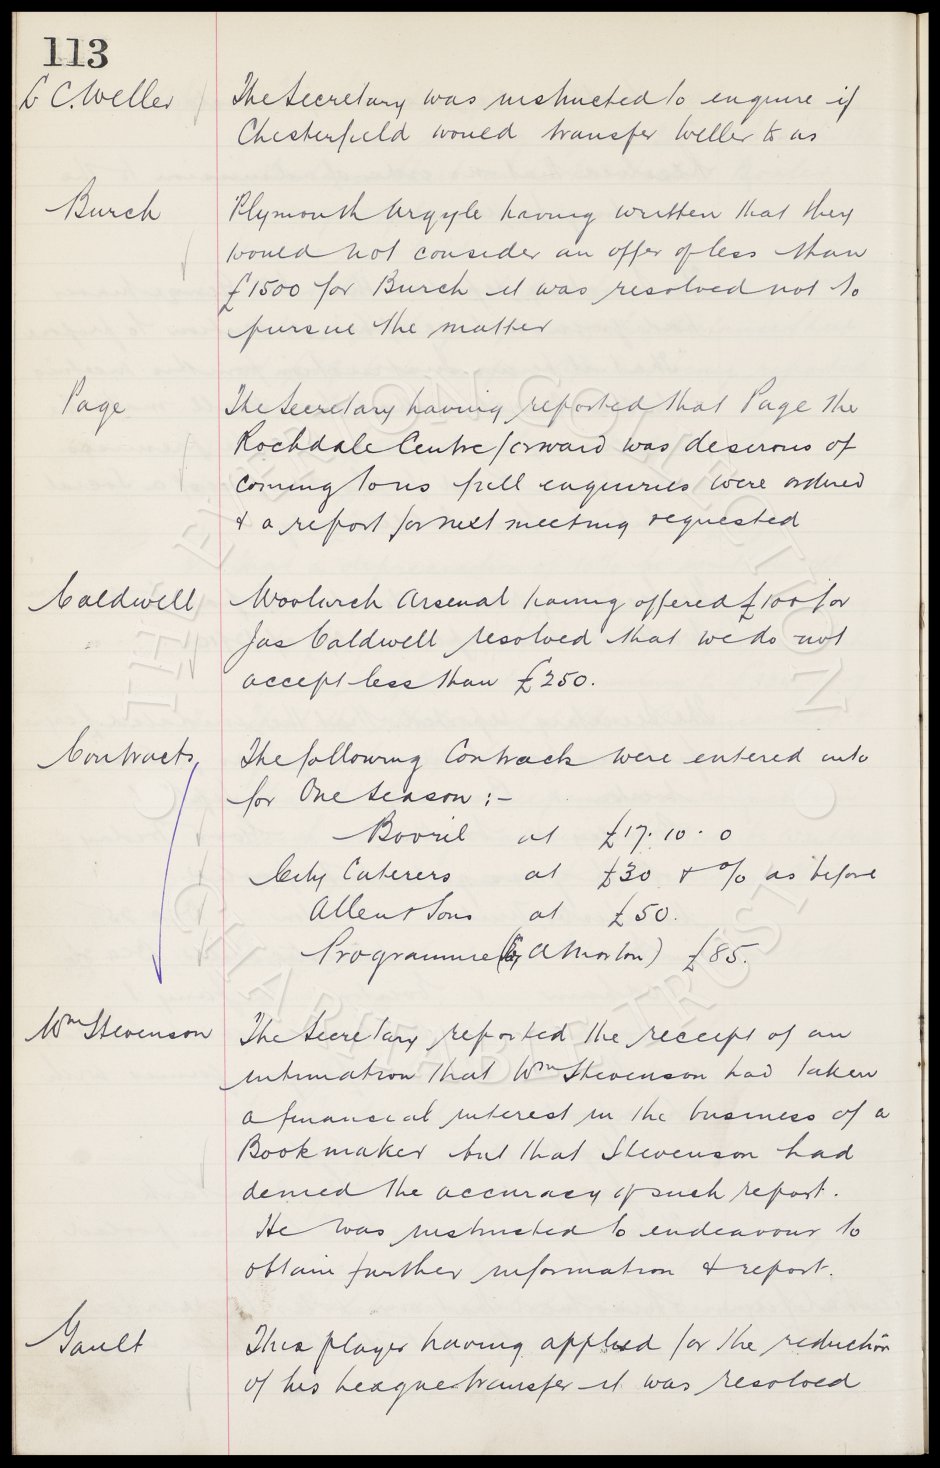 113
L C. Weller
The Secretary was instructed to enquire if
Chesterfield would transfer Weller to us
Burch
Plymouth Argyle having written that they
would not consider an offer of less than
£1500 for Burch it was resolved not to
pursue the matter
Page
The Secretary having reported that Page the
Rochdale Centre forward was desirous of
coming to us full enquiries were ordered
& a report for next meeting requested
Caldwell
Woolwich Arsenal having offered £100 for
Jas Caldwell resolved that we do not
accept less than £250.
Contracts
The following Contracts were entered into
for One Season :-
Bovril at £17. 10. 0
City Caterers at £30 & % as before
Allen & Sons at £50.
Programme (by A Morton) £85.
Wm Stevenson
The Secretary reported the receipt of an
intimation that Wm Stevenson had taken
a financial interest in the business of a
Bookmaker but that Stevenson had
denied the accuracy of such report.
He was instructed to endeavour to
obtain further information & report.
Gault
This player having applied for the reduction
of his League transfer it was resolved
THE EVERTON COLLECTION
CHARITABLE TRUST